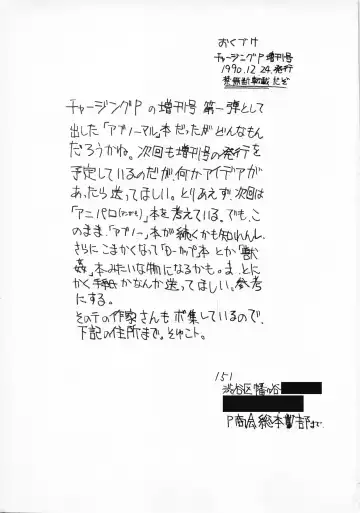 おくづけ
チャージングP 増刊号
1990.12.24.発行
禁無断転載など
チャージングPの増刊号 第一弾として
出した「アブノーマル」本だったがどんなもん
だろうかね。次回も増刊号の発行を
予定しているのだが何かアイデアが
あったら送ってほしい。とりあえず、次回は
「アニパロ」本を考えている。でも、こ
のまま、「アブノー」本が続くかも知れんし、
さらにこまかくなって「D-カップ」本とか「獣
姦」本みたいな物になるかも。ま、とに
かく手紙かなんか送ってほしい。参考
にする。
そのテの作家さんもボ集しているので、
下記の住所まで。そゆコト。
151
渋谷区幡ヶ谷
P商会総本部まで